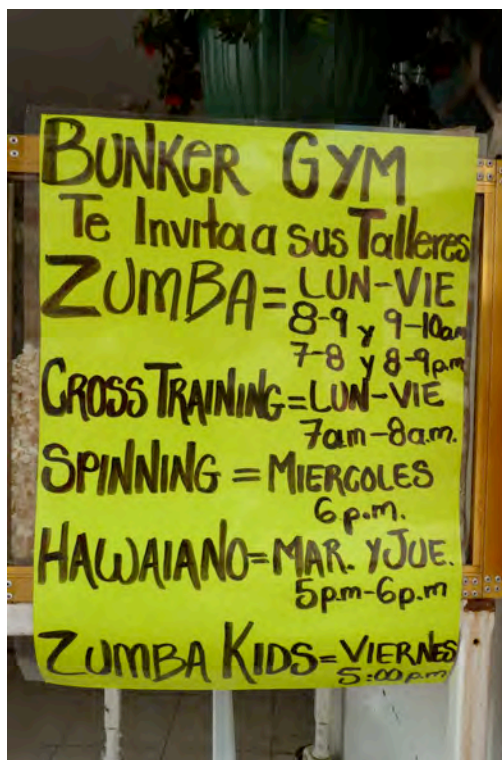 BUNKER GYM
Te Invita a sus Talleres
ZUMBA = LUN-VIE
8-9 y 9-10am
7-8 y 8-9p.m
CROSS TRAINING = LUN-VIE
7am-8a.m.
SPINNING = MIERCOLES
6p.m.
HAWAIANO = MAR. Y JUE.
5p.m-6p.m
ZUMBA KIDS = VIERNES
5:00p.m.